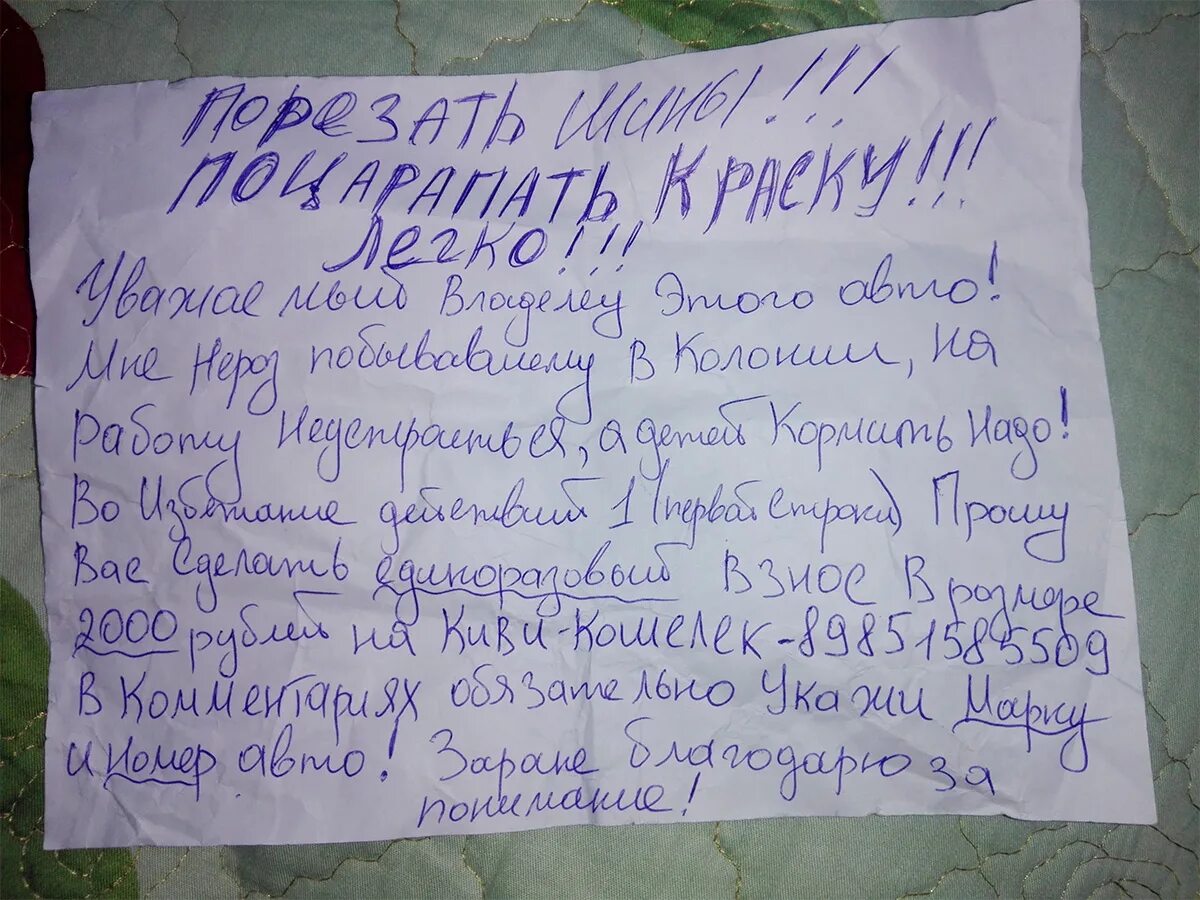 ПОРЕЗАТЬ ШИНЫ!!!
ПОЦАРАПАТЬ КРАСКУ!!!
ЛЕГКО!!!
Уважаемый Владелец Этого авто!
Мне Нероз побывавшему в Колонии, на
Работу Неустраиться, а детей Кормить Надо!
Во Избежание действий 1 (первой строки) Прошу
Вас Сделать единоразовый ВЗНОС В розмере
2000 рублей на Киви-Кошелек-89851585509
В Комментариях обязательно Укажи Марку
и номер авто! Заране благодарю за
понимание!